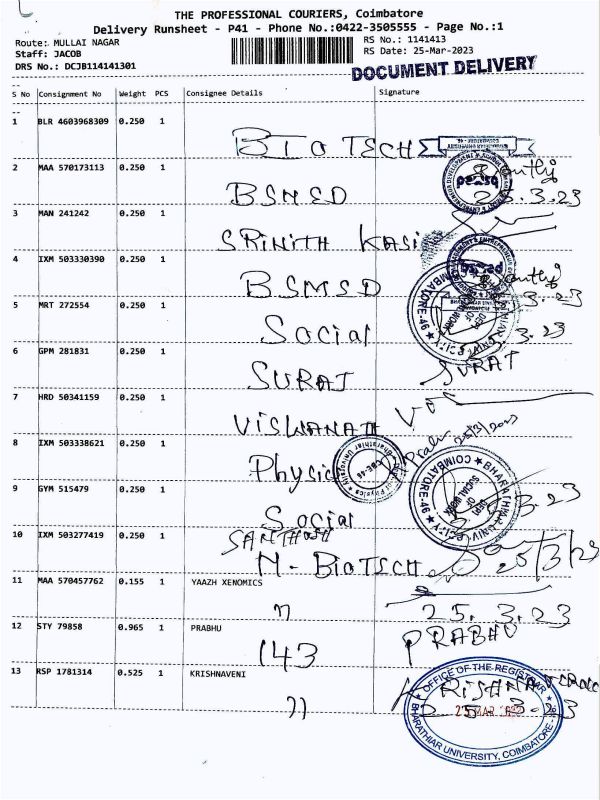 THE PROFESSIONAL COURIERS, Coimbatore
Delivery Runsheet - P41 - Phone No.:0422-3505555 - Page No.:1
Route: MULLAI NAGAR
RS No.: 1141413
Staff: JACOB
RS Date: 25-Mar-2023
DRS No.: DCJB114141301
DOCUMENT DELIVERY
S No Consignment No Weight PCS Consignee Details Signature
1 BLR 4603968309 0.250 1
BIOTECH
2 MAA 570173113 0.250 1
BSMED 25.3.23
3 MAN 241242 0.250 1
SRINITH KASI
4 IXM 503330390 0.250 1
BSMSD
5 MRT 272554 0.250 1
Social
6 GPM 281831 0.250 1
SURAT SURAT
7 HRD 50341159 0.250 1
VISWANATH
25/3/2023
8 IXM 503338621 0.250 1
Physics
BHARATHIAR UNIVERSITY
COIMBATORE-46
DEPT OF SOCIAL WORK
9 GYM 515479 0.250 1
Social
10 IXM 503277419 0.250 1
SANTHOSH
M-BIOTECH 25/3/23
11 MAA 570457762 0.155 1 YAAZH XENOMICS
25.3.23
12 STY 79858 0.965 1 PRABHU
143 PRABHU
13 RSP 1781314 0.525 1 KRISHNAVENI
OFFICE OF THE REGISTRAR
25 MAR 2023
BHARATHIAR UNIVERSITY, COIMBATORE